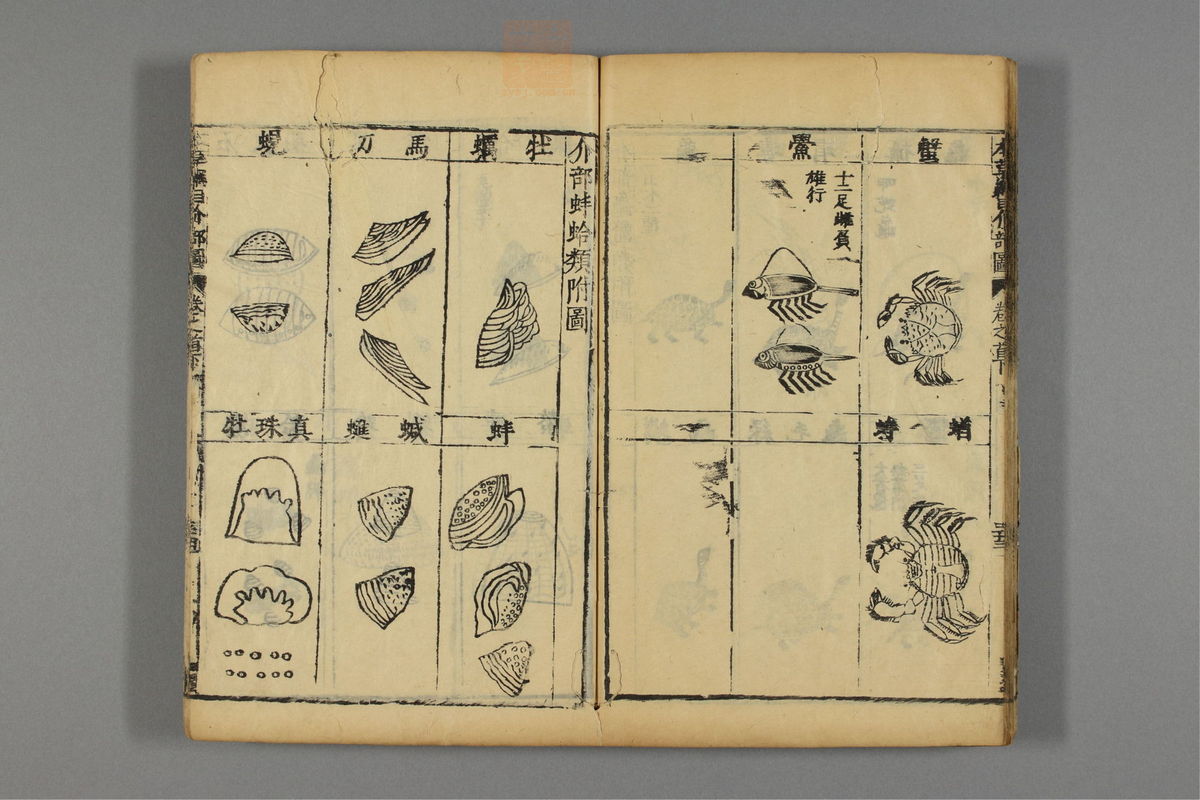 本草綱目介部圖
卷之首下
蟹
鱟
十二足雌負
雄行
蝤蛑
介部蚌蛤類附圖
牡蠣
馬刀
蜆
蚌
蝛䗯
真珠牡
卷之首下